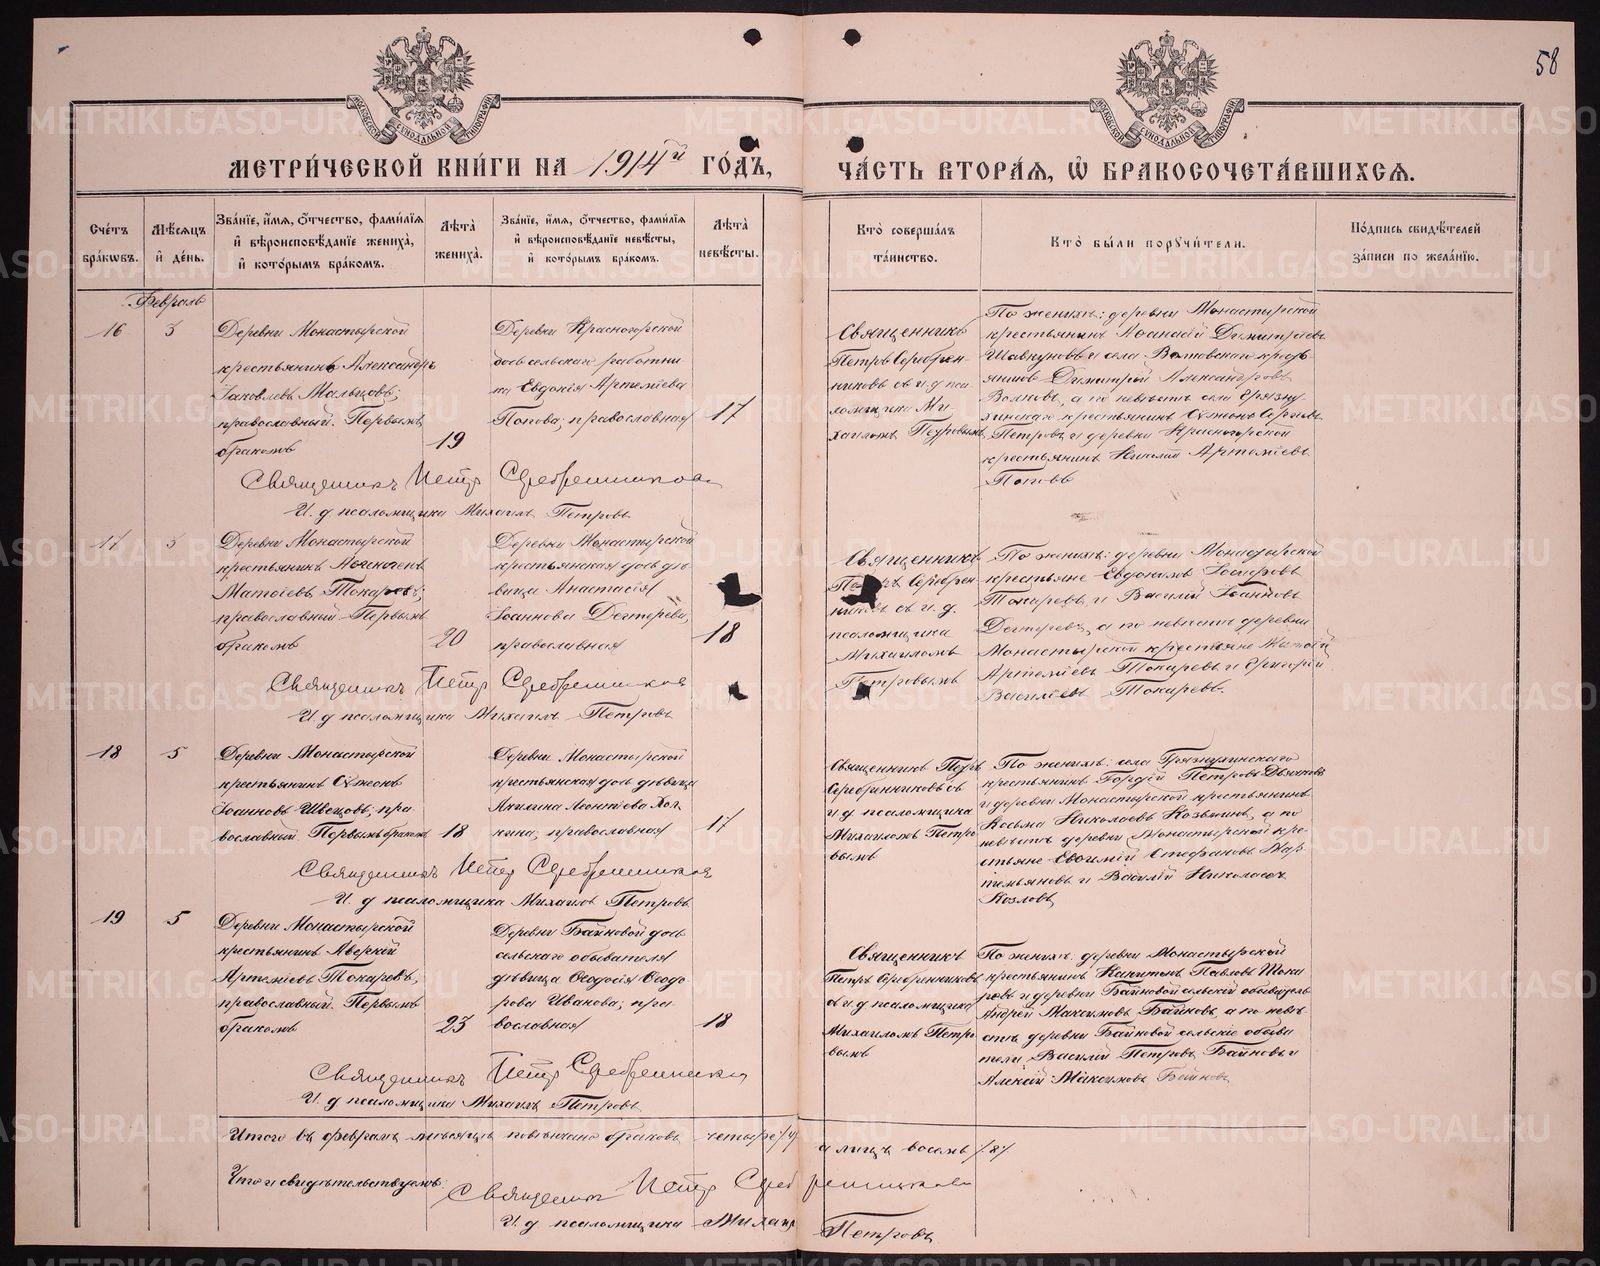 58
МЕТРИ́ЧЕСКОЙ КНИ́ГИ НА 1914й ГО́ДЪ,
ЧА́СТЬ ВТОРА́Я, Ѡ҆ БРАКОСОЧЕТА́ВШИХСЯ.
Сче́тъ бра́кѡвъ.
Мѣ́сяцъ и҆ де́нь.
Зва́нїе, и҆́мя, ѻ҆́тчество, фами́лїя и҆ вѣроисповѣ́данїе жениха̀, и҆ кото́рымъ бра́комъ.
Лѣ́та жениха̀.
Зва́нїе, и҆́мя, ѻ҆́тчество, фами́лїя и҆ вѣроисповѣ́данїе невѣ́сты, и҆ кото́рымъ бра́комъ.
Лѣ́та невѣ́сты.
Кто̀ соверша́лъ та́инство.
Кто̀ бы́ли поручи́тели.
По́дпись свидѣ́телей за́писи по жела́нїю.
Февраль
16
3
Деревни Монастырской
крестьянинъ Александръ
Іаковлевъ Мальцовъ;
православный. Первымъ
бракомъ
19
Деревни Красногорской
дочь сельскаго работни
ка Евдокія Артеміева
Попова; православная
17
Священникъ
Петръ Серебрен-
никовъ съ и. д. пса-
ломщика Ми-
хаиломъ Петровымъ
По женихѣ: деревни Монастырской
крестьянинъ Аѳанасій Димитріевъ
Шавкуновъ и села Волковскаго кресть-
янинъ Димитрій Александровъ
Волковъ, а по невѣстѣ села Грязну-
хинскаго крестьянинъ Сѵмеонъ Сергіевъ
Петровъ и деревни Красногорской
крестьянинъ Николай Артеміевъ
Поповъ
Священникъ Петръ Серебренниковъ
И. д. псаломщика Михаилъ Петровъ
17
3
Деревни Монастырской
крестьянинъ
Матѳіевъ Токаревъ;
православный. Первымъ
бракомъ
20
Деревни Монастырской
крестьянская дочь дѣ-
вица Анастасія
Іоаннова Дегтерева,
православная
18
Священникъ
Петръ Серебрен-
никовъ съ и. д.
псаломщика
Михаиломъ
Петровымъ
По женихѣ: деревни Монастырской
крестьяне Евдокимъ
Токаревъ и Василій Іоанновъ
Дегтеревъ, а по невѣстѣ деревни
Монастырской крестьяне
Артеміевъ Токаревъ и Григорій
Василіевъ Токаревъ.
Священникъ Петръ Серебренниковъ
И. д. псаломщика Михаилъ Петровъ
18
5
Деревни Монастырской
крестьянинъ Сѵмеонъ
Іоанновъ Швецовъ; пра
вославный. Первымъ бракомъ
18
Деревни Монастырской
крестьянская дочь дѣвица
Акилина Леонтіева Хол
кина; православная
17
Священникъ Петръ
Серебренниковъ съ
и. д. псаломщика
Михаиломъ Петро
вымъ
По женихѣ: села Грязнухинскаго
крестьянинъ Гордій Петровъ Дьячковъ
и деревни Монастырской крестьянинъ
Косьма Николаевъ Козьминъ, а по
невѣстѣ деревни Монастырской кре-
стьяне Евѳимій Стефановъ Мар
темьяновъ и Василій Николаевъ
Козловъ
Священникъ Петръ Серебренниковъ
И. д. псаломщика Михаилъ Петровъ
19
5
Деревни Монастырской
крестьянинъ Аверкій
Артеміевъ Токаревъ,
православный. Первымъ
бракомъ
23
Деревни Байновой дочь
сельскаго обывателя
дѣвица Ѳеодосія Ѳеодо-
рова Иванова; пра
вославная
18
Священникъ
Петръ Серебренниковъ
съ и. д. псаломщика
Михаиломъ Петро
вымъ
По женихѣ: деревни Монастырской
крестьянинъ Капитонъ Павловъ Тока
ревъ и деревни Байновой сельскій обыватель
Андрей Максимовъ Байновъ, а по невѣ
стѣ деревни Байновой сельскіе обыва
тели Василій Петровъ Байновъ и
Алексій Максимовъ Байновъ
Священникъ Петръ Серебренниковъ
И. д. псаломщика Михаилъ Петровъ
Итого въ февралѣ мѣсяцѣ повѣнчано браковъ четыре /4/ а лицъ восемь /8/
Что и свидѣтельствуемъ: Священникъ Петръ Серебренниковъ
И. д. псаломщика Михаилъ Петровъ
METRIKI.GASO-URAL.RU